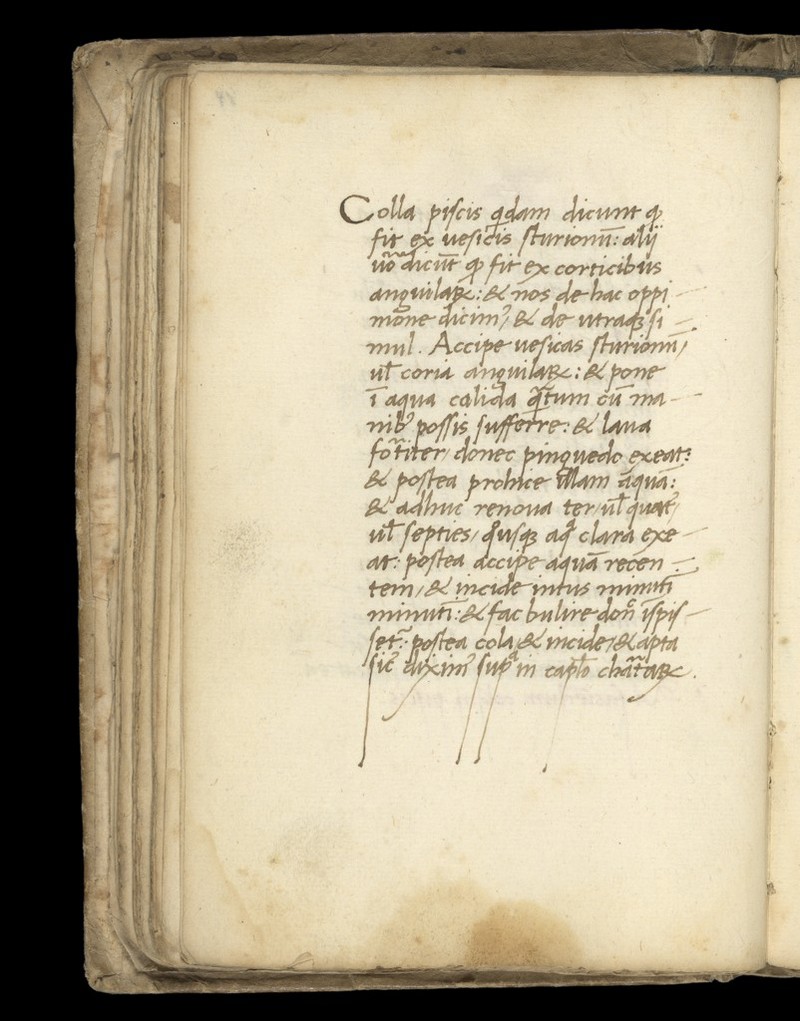 Colla piscis qdam dicunt ꝙ
fit ex uesicis sturionū: alij
uō dicūt ꝙ fit ex corticibus
anguilaꝝ: & nos de hac oppi
nione dicimꝰ, & de utraqꝫ si
mul. Accipe uesicas sturionū,
ul̄ coria anguilaꝝ: & pone
ī aqua calida q̄tum cū ma
nibꝰ possis sufferre: & laua
fort̄iter, donec pinguedo exeat:
& postea prohice illam aquā:
& adhuc renoua ter, ul̄ quat̓,
ul̄ septies, q̓usqꝫ aq̄ clara exe
at: postea accipe aquā recen
tem, & incide intus minutī
minutī: & fac bulire donc̄ īspis
set᷑: postea cola, & incide, & apta
sic̄ diximꝰ sup̄ in cap̄lo chartaꝝ.